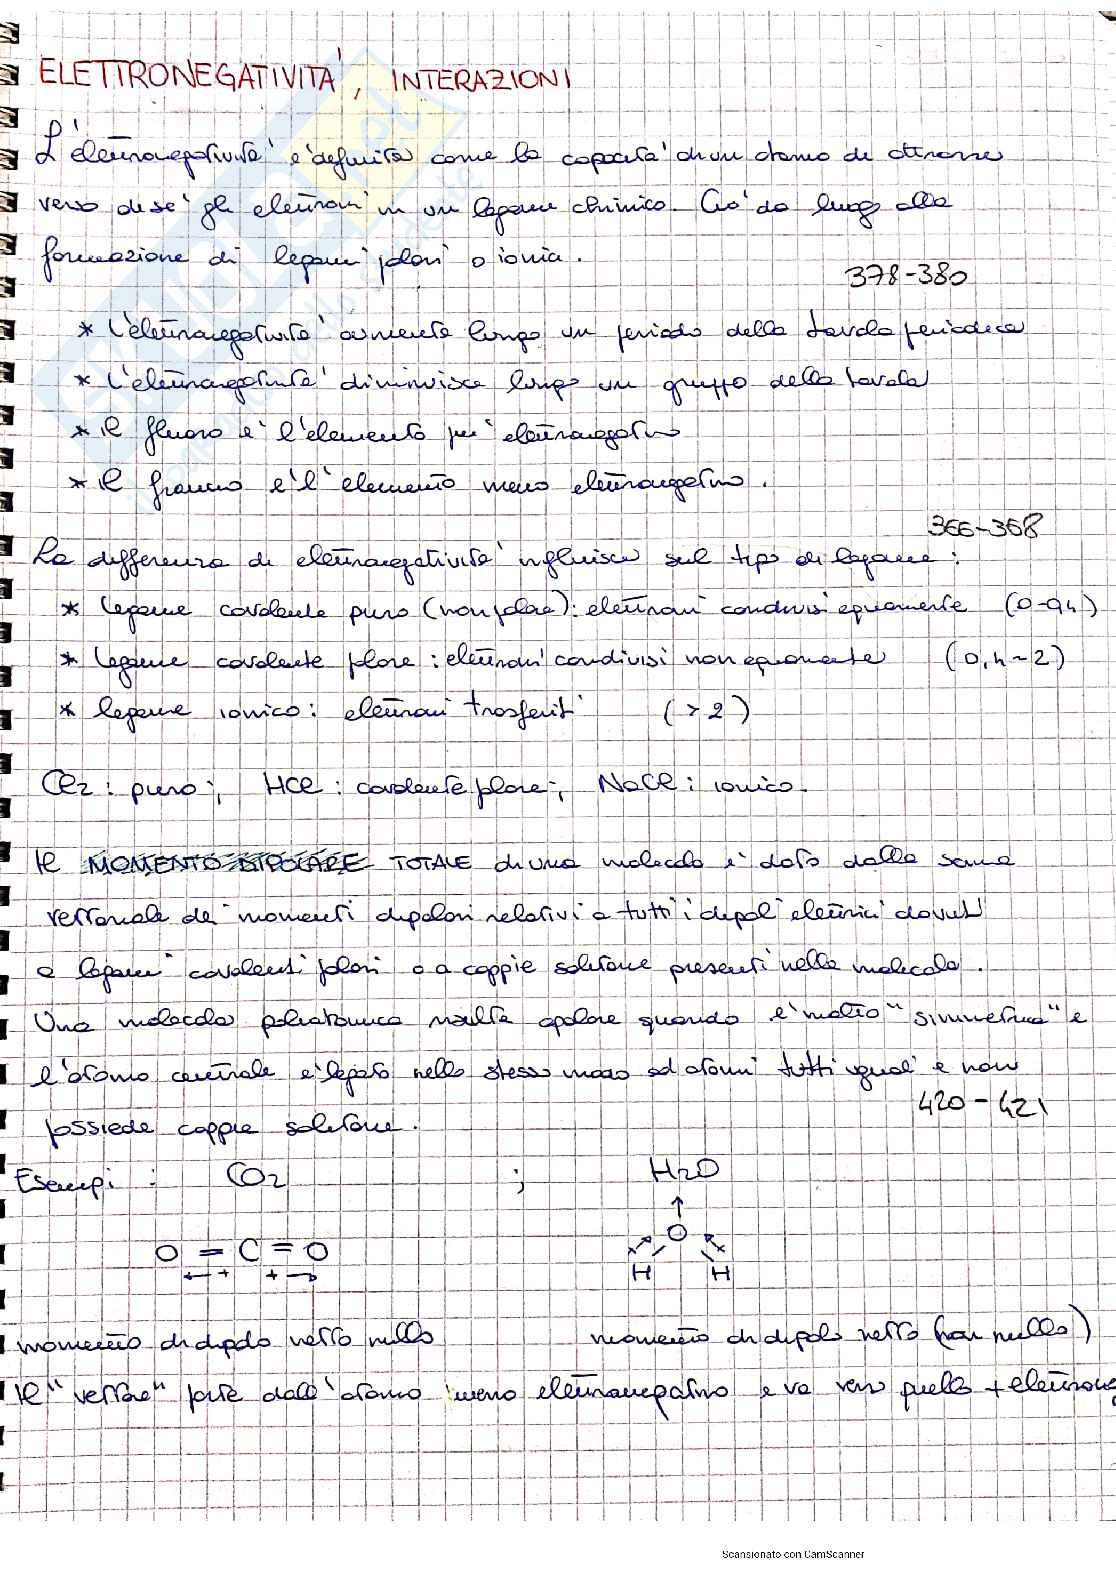 ELETTRONEGATIVITA', INTERAZIONI
L'elettronegatività è definita come la capacità di un atomo di attrarre
verso di sé gli elettroni in un legame chimico. Ciò da luogo alla
formazione di legami polari o ionici.
378-380
* L'elettronegatività aumenta lungo un periodo della tavola periodica
* L'elettronegatività diminuisce lungo un gruppo della tavola
* Il fluoro è l'elemento più elettronegativo
* Il francio è l'elemento meno elettronegativo.
366-368
La differenza di elettronegatività influisce sul tipo di legame:
* legame covalente puro (non polare): elettroni condivisi equamente (0-0,4)
* legame covalente polare: elettroni condivisi non equamente (0,4-2)
* legame ionico: elettroni trasferiti (>2)
Cl2: puro; HCl: covalente polare; NaCl: ionico.
Il MOMENTO DIPOLARE TOTALE di una molecola è dato dalla somma
vettoriale dei momenti dipolari relativi a tutti i dipoli elettrici dovuti
a legami covalenti polari o a coppie solitarie presenti nella molecola.
Una molecola poliatomica risulta apolare quando è molto "simmetrica" e
l'atomo centrale è legato nello stesso modo ad atomi tutti uguali e non
420-421
possiede coppie solitarie.
Esempi: CO2 ; H2O
O = C = O
O
H H
momento di dipolo netto nullo momento di dipolo netto (non nullo)
Il "vettore" parte dall'atomo meno elettronegativo e va verso quello + elettroneg
Scansionato con CamScanner